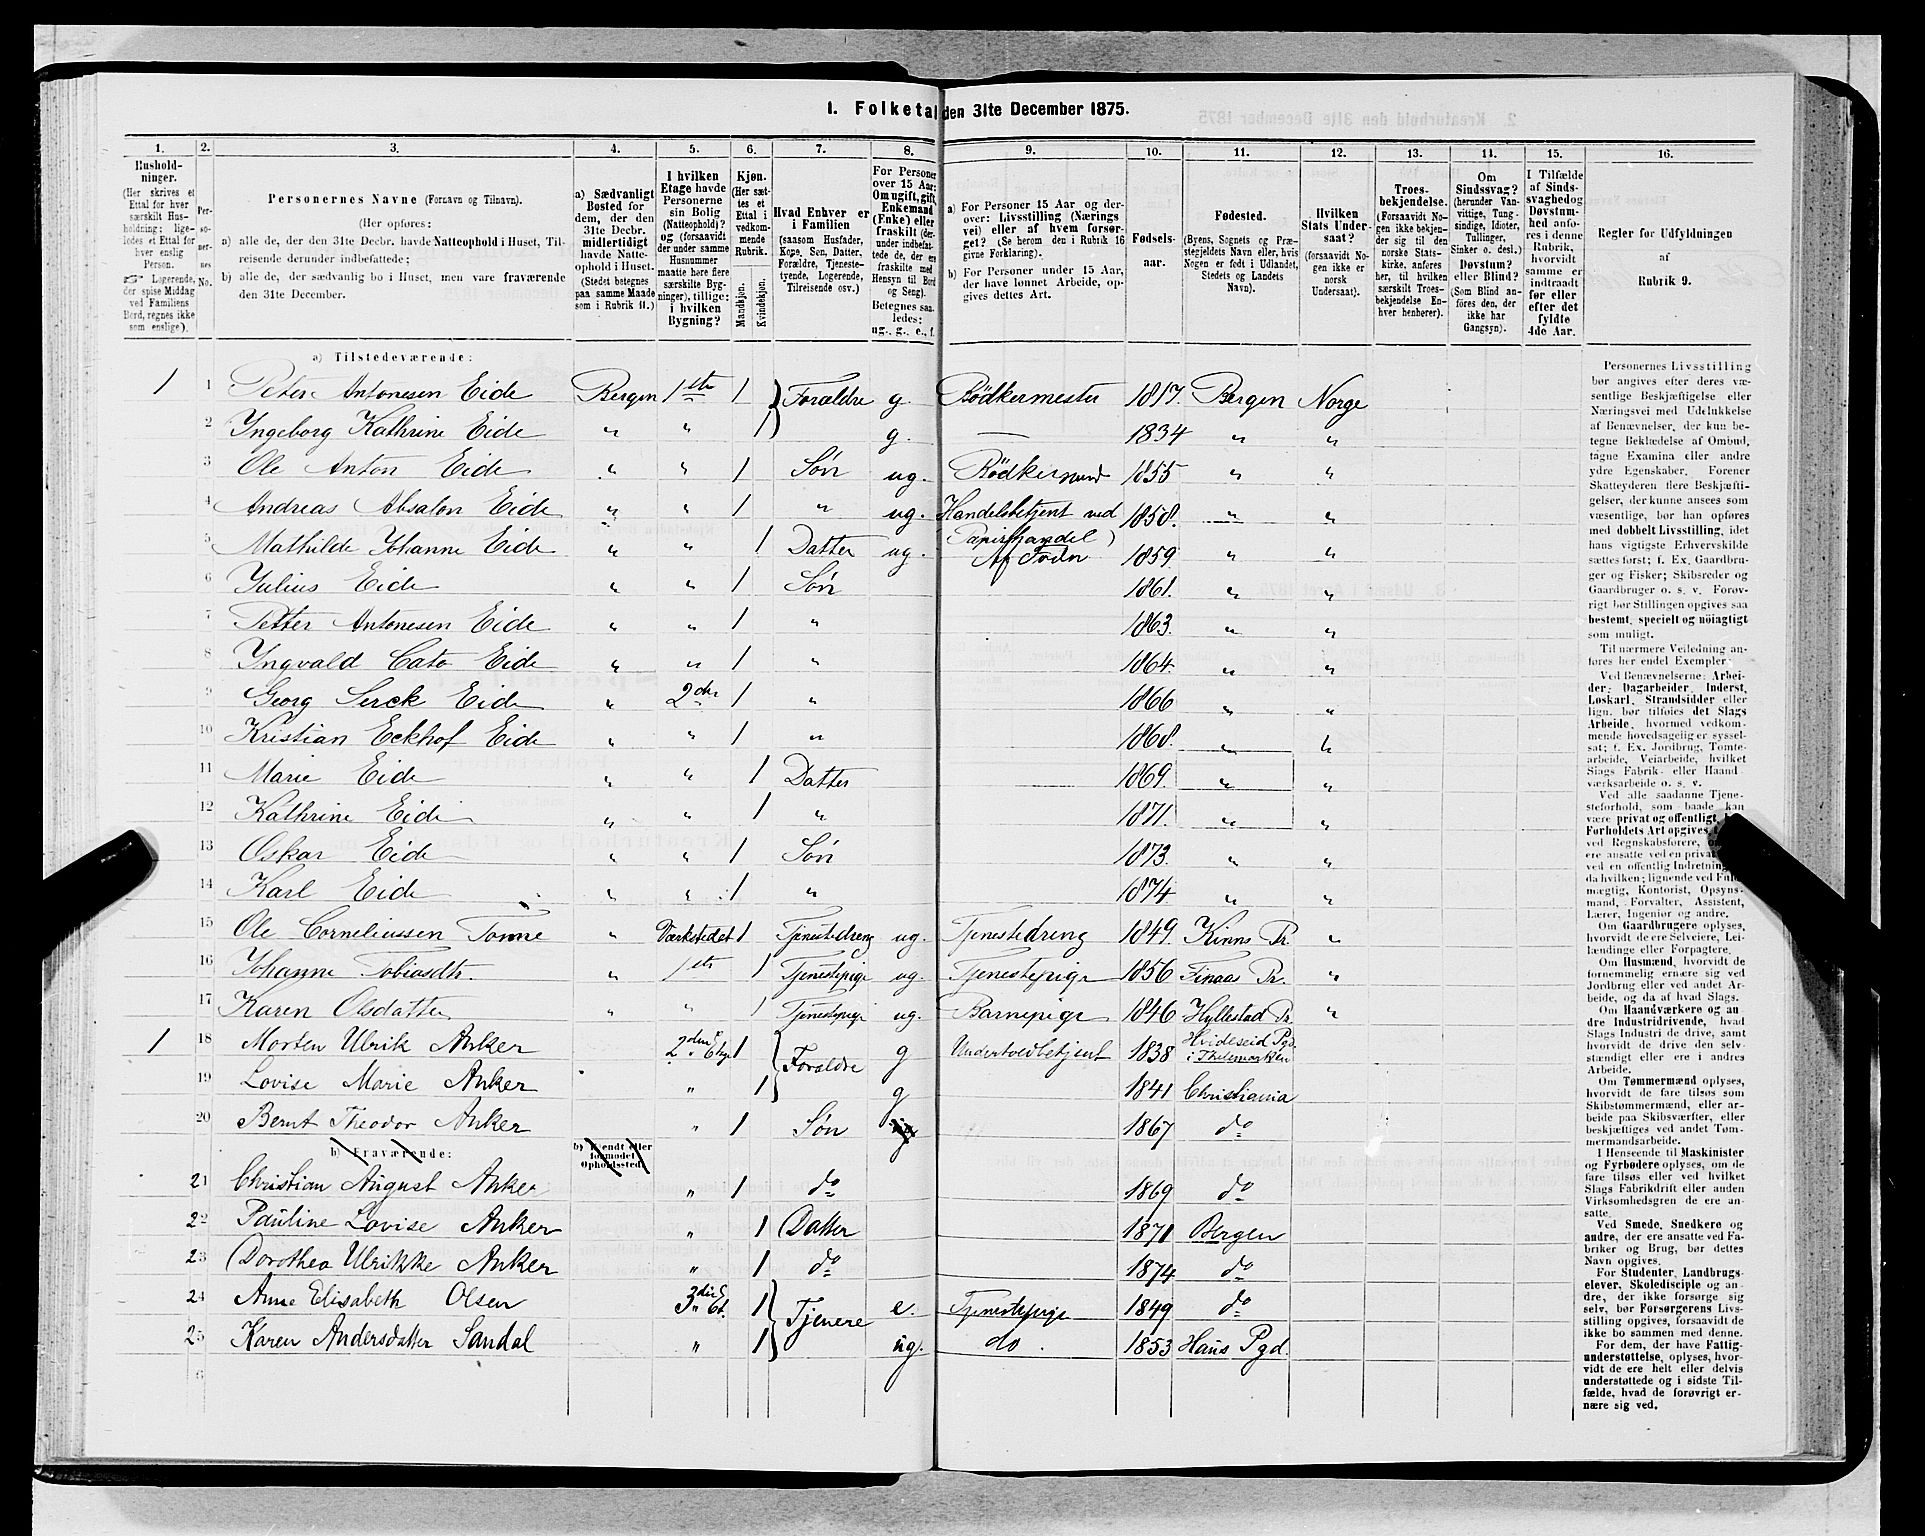 1. Folketal den 31te December 1875.
1. 2. 3. 4. 5. 6. 7. 8. 9. 10. 11. 12. 13. 14. 15. 16.
Hushold-
ninger.
(Her skrives et
Ettal for hver
særskilt Hus-
holdning; lige-
ledes et Ettal for
hver enslig
Person.
☞ Logerende,
der spise Middag
ved Familiens
Bord, regnes ikke
som enslige).
Per-
so-
ner-
nes
No.
Personernes Navne (Fornavn og Tilnavn).
(Her opføres:
a) alle de, der den 31te Decbr. havde Natteophold i Huset, Til-
reisende derunder indbefattede;
b) alle de, der sædvanlig bo i Huset, men vare fraværende
den 31te December.
a) Sædvanligt
Bosted for
dem, der den
31te Decbr.
midlertidigt
havde Natte-
ophold i Huset.
(Stedet betegnes
paa samme Maade
som i Rubrik 11.)
I hvilken
Etage havde
Personerne
sin Bolig
(Natteophold)?
og (forsaavidt
der under samme
Husnummer
maatte høre flere
særskilte Byg-
ninger), tillige:
i hvilken
Bygning?
Kjøn.
(Her sæt-
tes et
Ettal i
vedkom-
mende
Rubrik.
Mandkjøn.
Kvindekjøn.
Hvad Enhver er
i Familien
(saasom Husfader,
Kone, Søn, Datter,
Forældre, Tjeneste-
tyende, Logerende,
Tilreisende osv.)
For Personer
over 15 Aar:
Om ugift, gift,
Enkemand
(Enke) eller
fraskilt (der-
under indbefat-
tede de, der ere
fraskilte med
Hensyn til Bord
og Seng).
Betegnes saa-
ledes:
ug., g., e., f.
a) For Personer 15 Aar og der-
over: Livsstilling (Nærings-
vei) eller af hvem forsør-
get? (Se herom den i Rubrik 16
givne Forklaring).
b) For Personer under 15 Aar,
der have lønnet Arbeide, op-
gives dettes Art.
Fødsels-
aar.
Fødested.
(Byens, Sognets og Præ-
stegjeldets Navn eller, hvis
Nogen er født i Udlandet,
Stedets og Landets
Navn).
Hvilken
Stats Under-
saat?
(forsaavidt No-
gen ikke er
norsk
Undersaat).
Troes-
bekjendelse.
(Forsaavidt No-
gen ikke bekjen-
der sig til den
norske Stats-
kirke, anføres
her, til hvilken
særskilt Troes-
bekjendelse En-
hver henhører).
Om
Sindssvag?
(herunder Van-
vittige, Tung-
sindige, Idioter,
Tullinger,
Sinker o. desl.)
Døvstum?
eller Blind?
(Som Blind an-
føres den, der
ikke har
Gangsyn).
I Tilfælde
af Sinds-
svaghed og
Døvstum-
hed anfø-
res i denne
Rubrik,
hvorvidt
samme er
indtraadt
før eller
efter det
fyldte
4de Aar.
Regler for Udfyldningen
af
Rubrik 9.
a) Tilstedeværende:
1 1 Peter Antonesen Eide Bergen 1ste 1 Forældre g. Bödkermester 1817. Bergen Norge
2 Ingeborg Kathrine Eide " " 1 g. — 1834 " "
3 Ole Anton Eide " " 1 Søn ug. Bödkersvend 1855 " "
4 Andreas Absalon Eide " " 1 " ug. Handelsbetjent ved Papirhandel 1858. " "
5 Mathilde Johanne Eide " " 1 Datter ug. Af Foræln 1859 " "
6 Julius Eide " " 1 Søn 1861. " "
7 Petter Antonesen Eide " " 1 " 1863. " "
8 Ingvald Cato Eide " " 1 " 1864. " "
9 Georg Serck Eide " 2den 1 " 1866 " "
10 Kristian Eckhof Eide " " 1 " 1868. " "
11 Marie Eide " " 1 Datter 1869. " "
12 Kathrine Eide " " 1 " 1871. " "
13 Oskar Eide " " 1 Søn 1873. " "
14 Karl Eide " " 1 " 1874 " "
15 Ole Corneliussen Tonne " Værkstedet 1 Tjenstedreng ug. Tjenestedreng 1849. Kinns Pr. "
16 Johanne Tobiasdtr. " 1ste 1 Tjenstepige ug. Tjenestepige 1856 Finaas Pr. "
17 Karen Olsdatter " " 1 Tjenstepige ug. Barnepige 1846 Hyllestad Pr. "
1 18 Morten Ulrik Anker 2den Etge 1 Forældre g Undertoldbetjent 1838 Hvideseid Pgd. i Thelemarken
19 Lovise Marie Anker " 1 g 1841 Christiania
20 Bernt Theodor Anker " 1 Søn 1867 do
b) Fraværende: b) Kjendt eller
formodet
Opholdssted.
21 Christian August Anker " 1 do 1869 do
22 Pauline Lovise Anker " 1 Datter 1871 Bergen
23 Dorothea Ulrikke Anker " 1 do 1874 do
24 Anne Elisabeth Olsen 3die Et. 1 Tjenere e. Tjenestepige 1849 do
25 Karen Andersdatter Sandal " 1 ug. do. 1853 Haus Pgd.
6
Personernes Livsstilling
bør angives efter deres væ-
sentlige Beskjæftigelse eller
Næringsvei med Udelukkelse
af Benævnelser, der kun be-
tegne Beklædelse af Ombud,
tagne Examina eller andre
ydre Egenskaber. Forener
Skatteyderen flere Beskjæfti-
gelser, der kunne ansees som
væsentlige, bør han opføres
med dobbelt Livsstilling, idet
hans vigtigste Erhvervskilde
sættes først; f. Ex. Gaardbru-
ger og Fisker; Skibsreder og
Gaardbruger o. s. v. Forøv-
rigt bør Stillingen opgives saa
bestemt, specielt og nøiagtigt
som muligt.
Til nærmere Veiledning an-
føres her endel Exempler:
Ved Benævnelserne: Arbei-
der, Dagarbeider, Inderst,
Løskarl, Strandsidder eller
lign. bør tilføies det Slags
Arbeide, hvormed vedkom-
mende hovedsagelig er syssel-
sat; f. Ex. Jordbrug, Tomte-
arbeide, Veiarbeide, hvilket
Slags Fabrik- eller Haand-
værksarbeide o. s. v.
Ved alle saadanne Tjene-
steforhold, som baade kan
være privat og offentligt,
Forholdets Art opgives,
ved Regnskabsførere,
ere ansatte ved en privat
ved en offentlig Indretning
da hvilken; lignende ved Fuld-
mægtig, Kontorist, Opsyns-
mand, Forvalter, Assistent,
Lærer, Ingeniør og andre.
Om Gaardbrugere oplyses,
hvorvidt de ere Selveiere, Lei-
lændinge eller Forpagtere.
Om Husmænd, hvorvidt de
fornemmelig ernære sig ved
Jordbrug eller ved andet Ar-
beide, og da af hvad Slags.
Om Haandværkere og an-
dre Industridrivende, hvad
Slags Industri de drive, samt
hvorvidt de drive den selv-
stændigt eller ere i andres
Arbeide.
Om Tømmermænd oplyses,
hvorvidt de fare tilsøs som
Skibstømmermænd, eller ar-
beide paa Skibsværfter, eller
beskjæftiges ved andet Tøm-
mermandsarbeide.
I Henseende til Maskinister
og Fyrbødere oplyses, om de
fare tilsøs eller ved hvilket
Slags Fabrikdrift eller anden
Virksomhedsgren de ere an-
satte.
Ved Smede, Snedkere og
andre, der ere ansatte ved Fa-
briker og Brug, bør dettes
Navn opgives.
For Studenter, Landbrugs-
elever, Skoledisciple og an-
dre, der ikke forsørge sig
selv, bør Forsørgerens Livs-
stilling opgives, forsaavidt de
ikke bo sammen med denne.
For dem, der have Fattig-
understøttelse, oplyses, hvor-
vidt de ere helt eller delvis
understøttede og i sidste Til-
fælde, hvad de forøvrigt er-
nære sig ved.